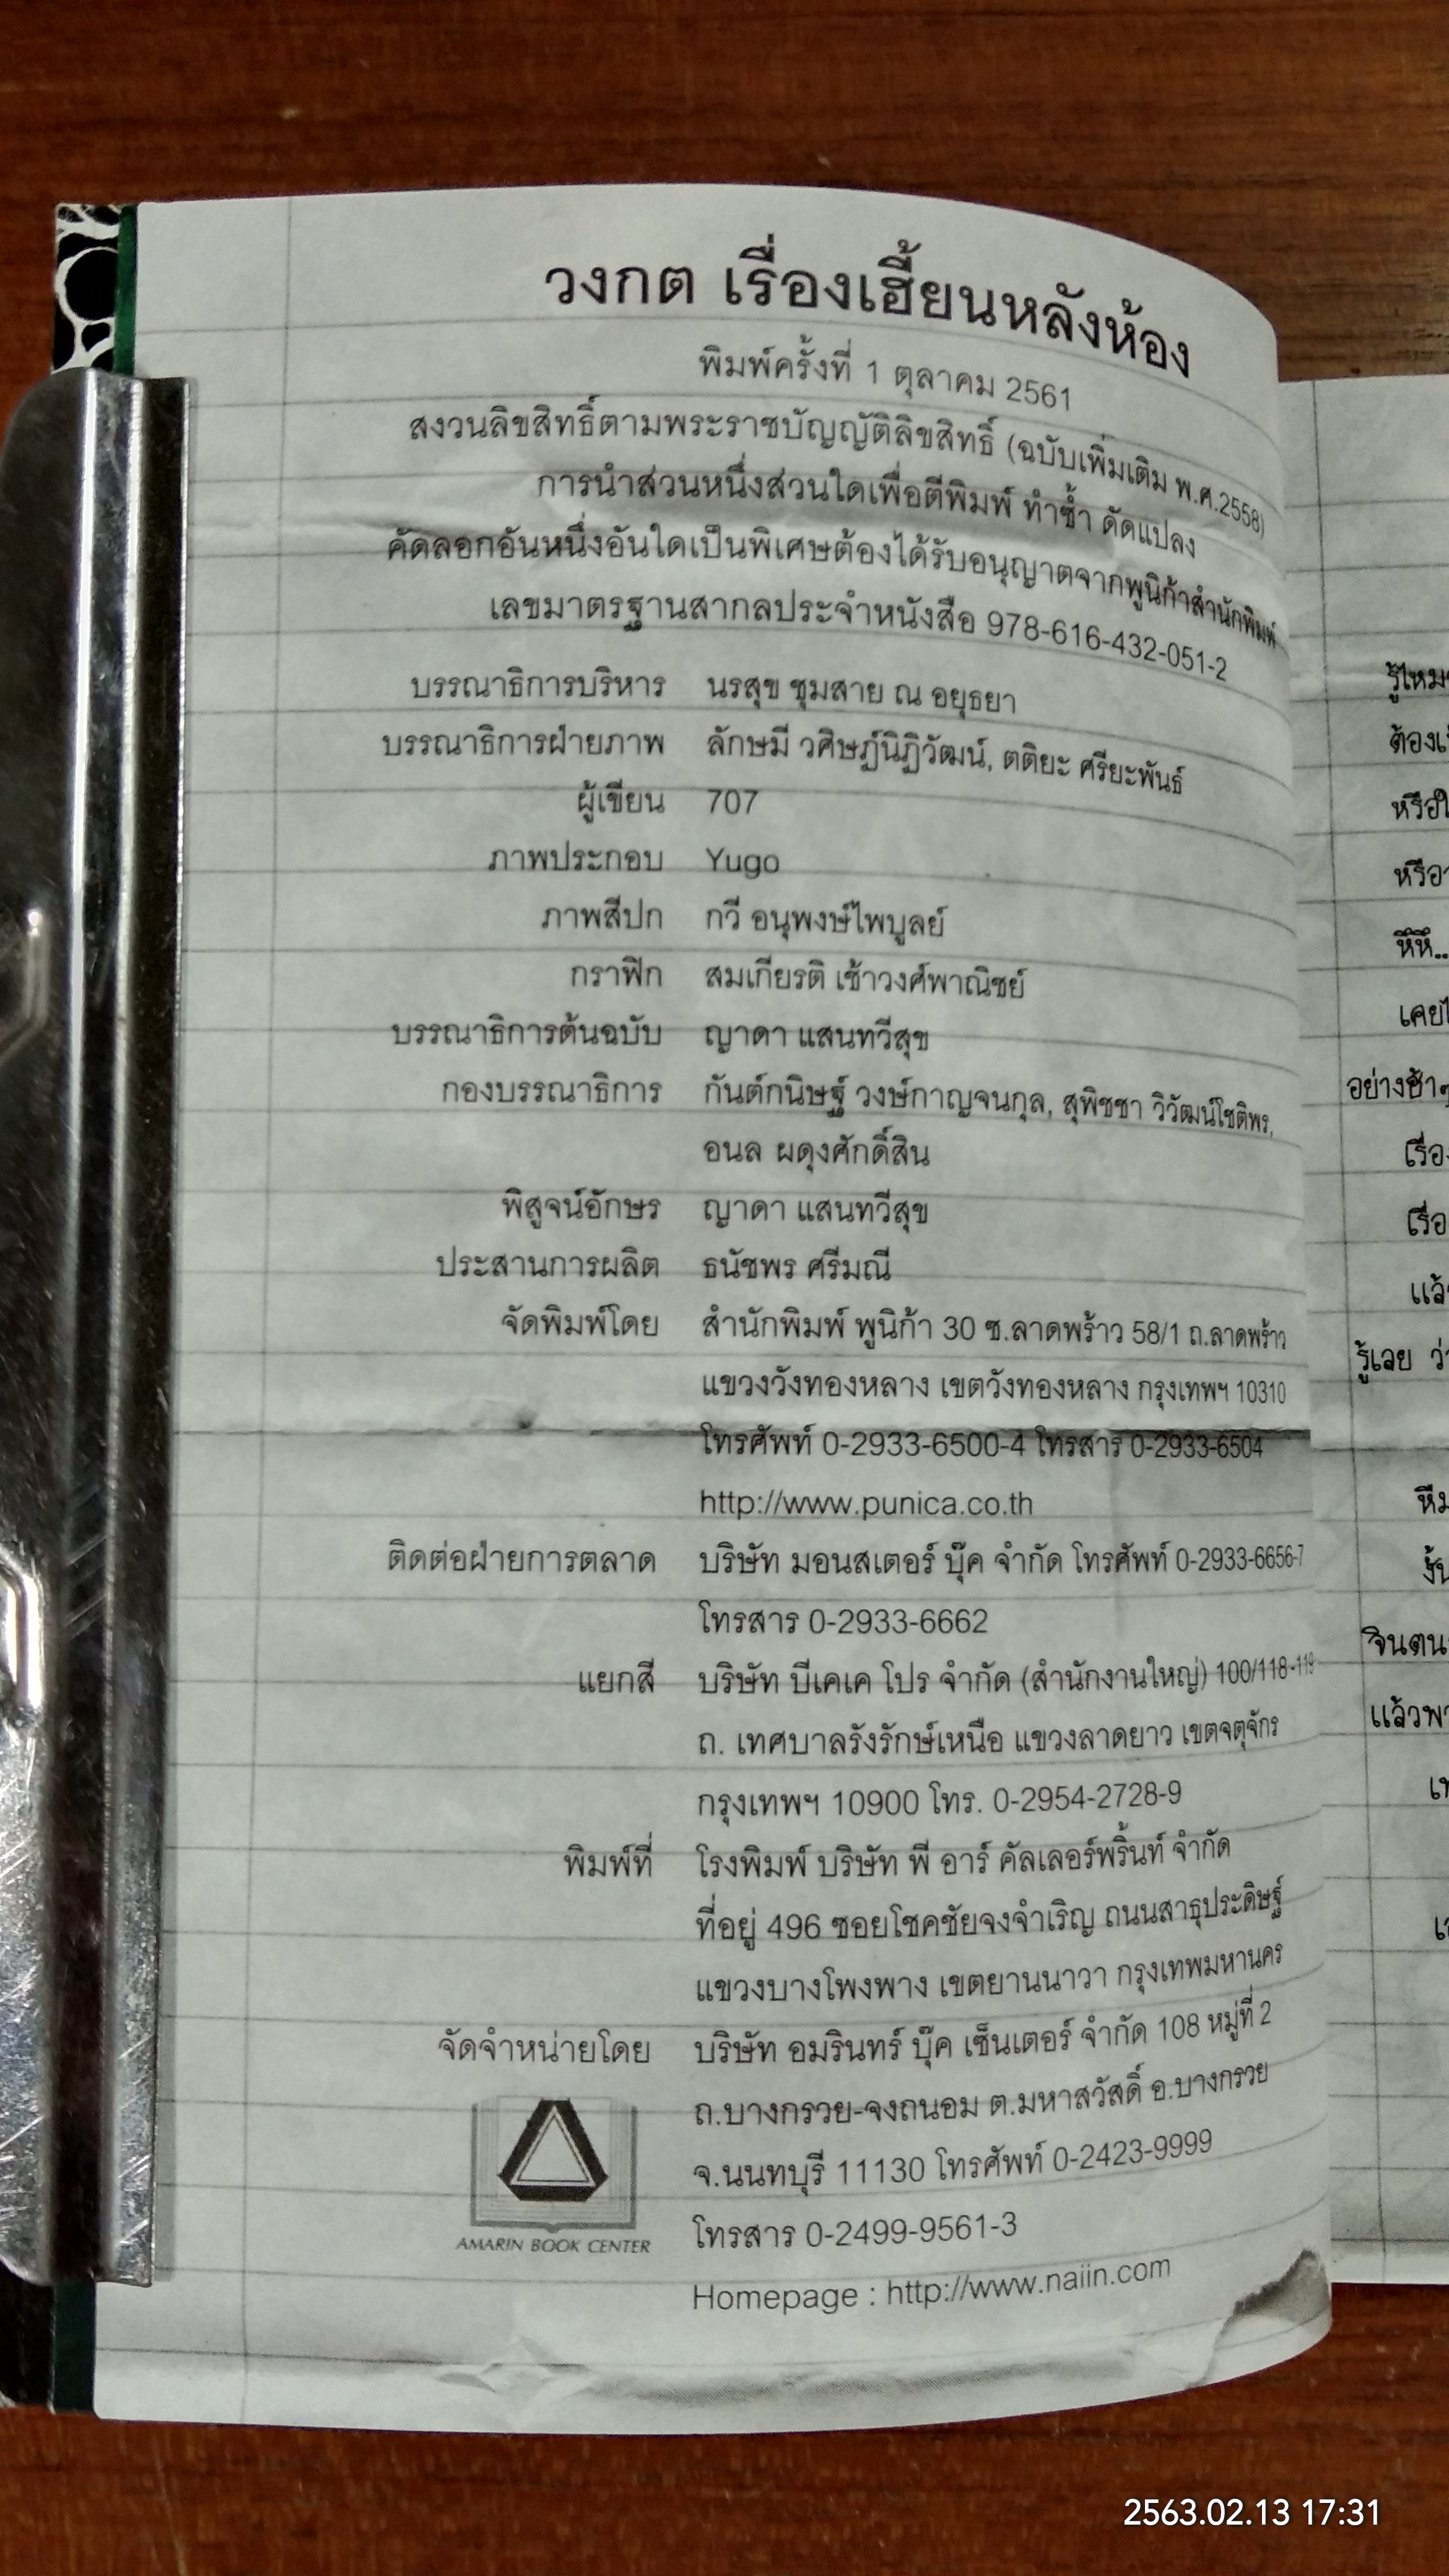 วงกต เรื่องเฮี้ยนหลังห้อง
พิมพ์ครั้งที่ 1 ตุลาคม 2561
สงวนลิขสิทธิ์ตามพระราชบัญญัติลิขสิทธิ์ (ฉบับเพิ่มเติม พ.ศ.2558)
การนำส่วนหนึ่งส่วนใดเพื่อตีพิมพ์ ทำซ้ำ ดัดแปลง
คัดลอกอันหนึ่งอันใดเป็นพิเศษต้องได้รับอนุญาตจากพูนิก้าสำนักพิมพ์
เลขมาตรฐานสากลประจำหนังสือ 978-616-432-051-2
บรรณาธิการบริหาร นรสุข ชุมสาย ณ อยุธยา
บรรณาธิการฝ่ายภาพ ลักษมี วศิษฏ์นิฏิวัฒน์, ตติยะ ศรียะพันธ์
ผู้เขียน 707
ภาพประกอบ Yugo
ภาพสีปก กวี อนุพงษ์ไพบูลย์
กราฟิก สมเกียรติ เช้าวงศ์พาณิชย์
บรรณาธิการต้นฉบับ ญาดา แสนทวีสุข
กองบรรณาธิการ กันต์กนิษฐ์ วงษ์กาญจนกุล, สุพิชชา วิวัฒน์โชติพร,
อนล ผดุงศักดิ์สิน
พิสูจน์อักษร ญาดา แสนทวีสุข
ประสานการผลิต ธนัชพร ศรีมณี
จัดพิมพ์โดย สำนักพิมพ์ พูนิก้า 30 ซ.ลาดพร้าว 58/1 ถ.ลาดพร้าว
แขวงวังทองหลาง เขตวังทองหลาง กรุงเทพฯ 10310
โทรศัพท์ 0-2933-6500-4 โทรสาร 0-2933-6504
http://www.punica.co.th
ติดต่อฝ่ายการตลาด บริษัท มอนสเตอร์ บุ๊ค จำกัด โทรศัพท์ 0-2933-6656-7
โทรสาร 0-2933-6662
แยกสี บริษัท บีเคเค โปร จำกัด (สำนักงานใหญ่) 100/118-119
ถ. เทศบาลรังรักษ์เหนือ แขวงลาดยาว เขตจตุจักร
กรุงเทพฯ 10900 โทร. 0-2954-2728-9
พิมพ์ที่ โรงพิมพ์ บริษัท พี อาร์ คัลเลอร์พริ้นท์ จำกัด
ที่อยู่ 496 ซอยโชคชัยจงจำเริญ ถนนสาธุประดิษฐ์
แขวงบางโพงพาง เขตยานนาวา กรุงเทพมหานคร
จัดจำหน่ายโดย บริษัท อมรินทร์ บุ๊ค เซ็นเตอร์ จำกัด 108 หมู่ที่ 2
ถ.บางกรวย-จงถนอม ต.มหาสวัสดิ์ อ.บางกรวย
จ.นนทบุรี 11130 โทรศัพท์ 0-2423-9999
โทรสาร 0-2499-9561-3
AMARIN BOOK CENTER
Homepage : http://www.naiin.com
2563.02.13 17:31